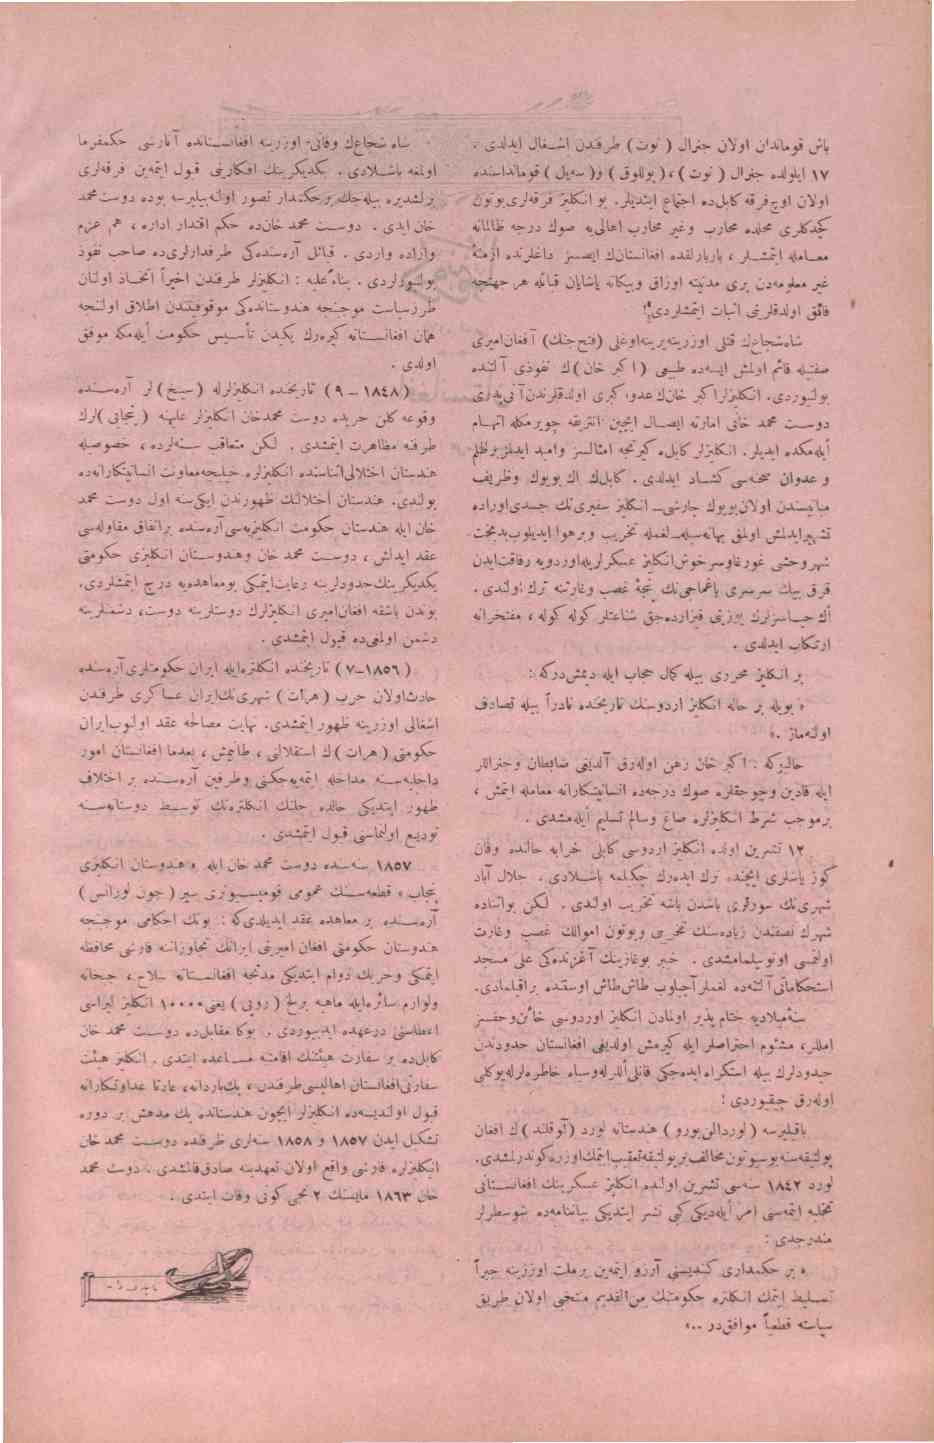 باش قوماندان اولان جنرال ( نوت ) طرفندن اشغال ايدلدى .
١٧ ايلولده جنرال ( نوت ) ، ( پوللوق ) و( سه‌يل ) قومانداسنده
اولان اوچ فرقه كابل‌ده اجتماع ايتديلر. بو انكليز فرقه‌لرى بوتون
كچدكلرى محلده محارب وغير محارب اهالى‌يه صوك درجه ظالمانه
معامله ايتمشلر ، باربارلقده افغانستانك ايصسز داغلرنده ازمنهٔ
غير معلومه‌دن برى مدنيته اوزاق وبيكانه ياشايان قبائله هر جهتجه
فائق اولدقلرينى اثبات ايتمشلردى!
شاه شجاعك قتلى اوزرينه يرينه اوغلى (فتح جنك) آفغان اميرى
صفتيله قائم اولمش ايسه‌ده طبيعى ( اكبر خان ) ك نفوذى آلتنده
بولنيوردى. انكليزلر اكبر خانك عدو اكبرى اولدقلرندن آنى پدرى
دوست محمد خانى امارته ايصال ايچين انتريقه چويرمكله اتهام
ايله‌مكده ايديلر. انكليزلر كابل‌ه كيرنجه امثالسز واميد ايدلمز بر ظلم
و عدوان صحنه‌سى كشاد ايدلدى . كابلك اك بويوك وظريف
مبانيسندن اولان بويوك چارشى ـ انكليز سفيرى‌نك جسدى اوراده
تشهير ايدلمش اولمق بهانه‌سيله ـ لغمله تخريب وبرهوا ايديلوب بدبخت
شهر وحشى غورغاوسرخوش انكليز عسكرلريله اوردويه رفاقت ايدن
قرق بيك سرسرى ياغماجى‌نك پنجهٔ غصب وغارتنه ترك اولندى .
اك حياسزلرك يوزينى قيزارده‌جق شناعتلر كوله كوله ، مفتخرانه
ارتكاب ايدلدى .
بر انكليز محررى بيله كمال حجاب ايله ديمش‌دركه :
« بويله بر حاله انكليز اردوسنك تاريخنده نادراً بيله تصادف
اولنه‌ماز . »
حالبركه : اكبر خان رهن اوله‌رق آلديغى ضابطان وجنراللر
ايله قادين وچوجقلره صوك درجه‌ده انسانيتكارانه معامله ايتمش ،
بر موجب شرط انكليزلره صاغ وسالم تسليم ايله‌مشدى .
١٢ تشرين اولده انكليز اردوسى كابلى خرابه حالنده وقان
كوز ياشلرى ايچنده ترك ايده‌رك چكلمه باشلادى . جلال آباد
شهرى‌نك سورلرى باشدن باشه تخريب اولندى . لكن بو اثناده
شهرك نصفندن زياده‌سنك تخريبى وبوتون اموالك غصب وغارت
اولنمسى اونوتيلمامشدى . خبر بوغازينك آغزنده‌كى على مسجد
استحكاماتى آلتنه‌ده لغملر آچيلوب طاش طاش اوستنده براقلمادى.
سنهٔ ميلاديه ختام پذير اولمادن انكليز اوردوسى خائن وحقسز
امللر ، مشئوم احتراصلر ايله كيرمش اولديغى افغانستان حدودندن
حيدودلرك بيله استكراه ايده‌جكى قانلى اللرله وسياه خاطره‌لرله يوكلى
اوله‌رق چيقيوردى !
باقيليرسه ( لورد النبورو ) هندستانه لورد ( آوقلند ) ك افغان
پولتيقه‌سنه بوسبوتون مخالف بر پولتيقه تعقيب ايتمك اوزره كوندرلمشدى.
لورد ١٨٤٢ سنه‌سى تشرين اولنده انكليز عسكرينك افغانستانى
تخليه ايتمه‌سنى امر ايله‌ديكى كبى نشر ايتديكى بياننامه‌ده شو سطرلر
مندرجدى :
« بر حكمدارى كنديسنى آرزو ايتمه‌ين بر ملت اوزرينه جبراً
تسليط ايتمك انكلتره حكومتنك من‌القديم متخبى اولان طريق
سياسته قطعياً موافق‌در .. »
شاه شجاعك وفاتى اوزرينه افغانستانده آنارشى حكمفرما
اولغه باشلادى . يكديكرينك افكارينى قبول ايتمه‌ين فرقه‌لرى
برلشديره بيله‌جك بر حكمدار تصور اولنه‌بيليرسه بوده دوست محمد
خان ايدى . دوست محمد خان‌ده حكم اقتدار اداره ، هم عزم
واراده واردى . قبائل آره‌سنده‌كى طرفدارلرى‌ده صاحب نفوذ
بولنيورلردى . بناءً عليه : انكليزلر طرفندن اخيراً اتخاذ اولنان
طرز سياست موجبنجه هندوستانده‌كى موقوفيتندن اطلاق اولنجه
همان افغانستانه كيره‌رك يكيدن تأسيس حكومت ايله‌مكه موفق
اولدى .
( ١٨٤٨ ـ ٩ ) تاريخنده انكليزلرله ( سيخ ) لر آره‌سنده
وقوعه كلن حربده دوست محمد خان انكليزلر عليهنه ( پنجابى ) لرك
طرفنه مظاهرت ايتمشدى . لكن متعاقب سنه‌لرده ، خصوصيله
هندستان اختلالى اثناسنده انكليزلره خيليجه معاونت انسانيتكارانه‌ده
بولندى. هندستان اختلالنك ظهورندن ايكى سنه اول دوست محمد
خان ايله هندستان حكومت انكليزيه‌سى آره‌سنده بر اتفاق مقاوله‌سى
عقد ايدلمش ، دوست محمد خان وهندوستان انكليزى حكومتى
يكديكرينك حدودلرينه رعايت ايتمكى بو معاهده‌يه درج ايتمشلردى.
بوندن باشقه افغان اميرى انكليزلرك دوستلرينه دوست، دشمنلرينه
دشمن اولمغى‌ده قبول ايتمشدى .
( ١٨٥٦ـ٧ ) تاريخنده انكلتره ايله ايران حكومتلرى آره‌سنده
حادث اولان حرب ( هرات ) شهرى‌نك ايران عساكرى طرفندن
اشغالى اوزرينه ظهور ايتمشدى. نهايت مصالحه عقد اولنوب ايران
حكومتى ( هرات ) ك استقلالنى ، طانيمش ، بعدما افغانستان امور
داخليه‌سنه مداخله ايتمه‌يه‌جكنى وطرفين آره‌سنده بر اختلاف
ظهور ايتديكى حالده حلنك انكلتره‌نك توسيط دوستانه‌سنه
توديع اولنماسنى قبول ايتمشدى .
١٨٥٧ سنه‌سنده دوست محمد خان ايله « هندوستان انكليزى
پنجاب » قطعه‌سنك عمومى قوميسيونرى سير ( جون لورانس )
آره‌سنده بر معاهده عقد ايديلدى‌كه : بونك احكامى موجبنجه
هندوستان حكومتى افغان اميرينى ايرانك تجاوزاتنه قارشى محافظه
ايتمكى وحربك دوام ايتديكى مدتجه افغانستانه سلاح ، جبخانه
ولوازم سائره ايله ماهيه بر لخ ( روپى ) يعنى ١٠٠٠٠ انكليز ليراسى
اعطاسنى در عهده ايدييوردى . بوكا مقابل‌ده دوست محمد خان
كابل‌ده بر سفارت هيئتنك اقامتنه مساعده ايتدى . انكليز هيئت
سفارتى افغانستان اهاليسى طرفندن ، پك باردانه ، عادتا عداوتكارانه
قبول اولنديسه‌ده انكليزلر ايچون هندستانده پك مدهش بر دوره
تشكيل ايدن ١٨٥٧ و ١٨٥٨ سنه‌لرى ظرفنده دوست محمد خان
انكليزلره قارشى واقع اولان تعهدينه صادق قالمشدى . دوست محمد
خان ١٨٦٣ مايسنك ٢ نجى كونى وفات ايتدى .